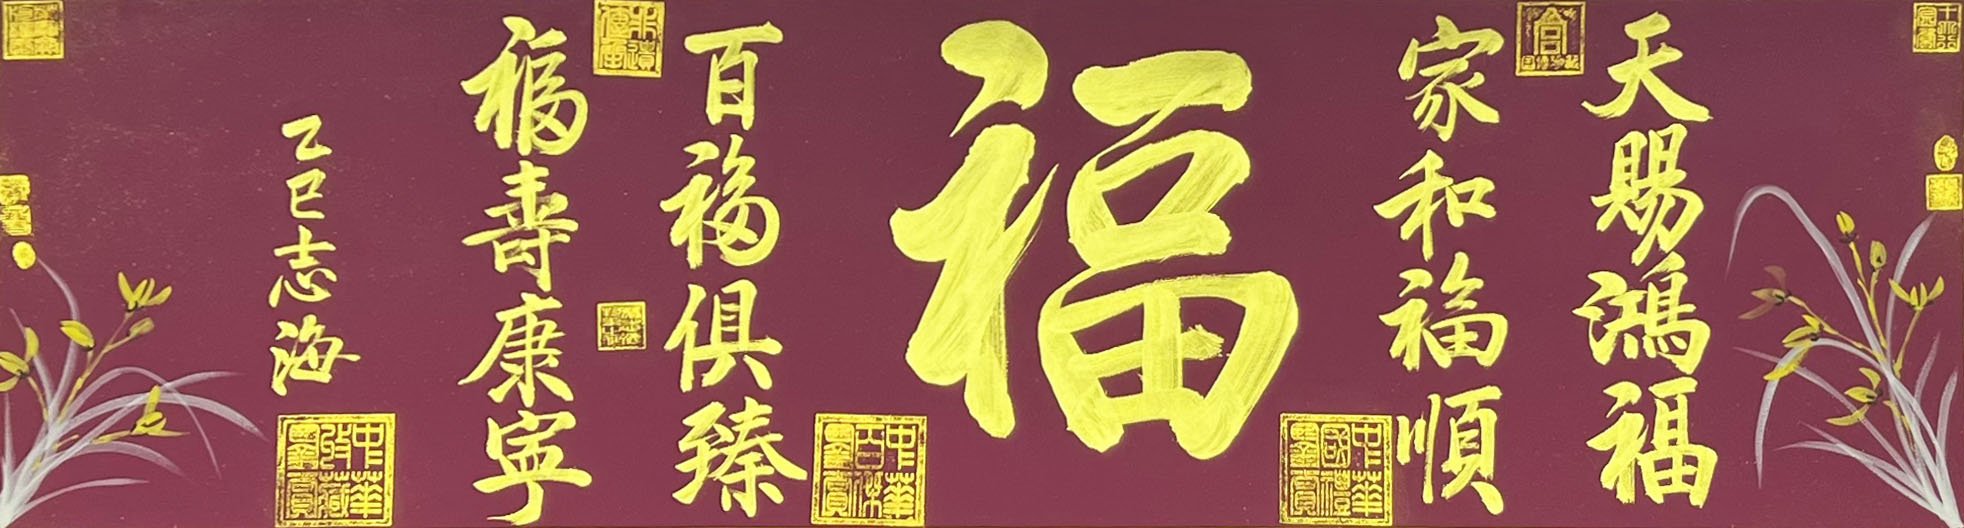 天赐鸿福
家和福順
福
百福俱臻
福壽康寧
乙巳志海